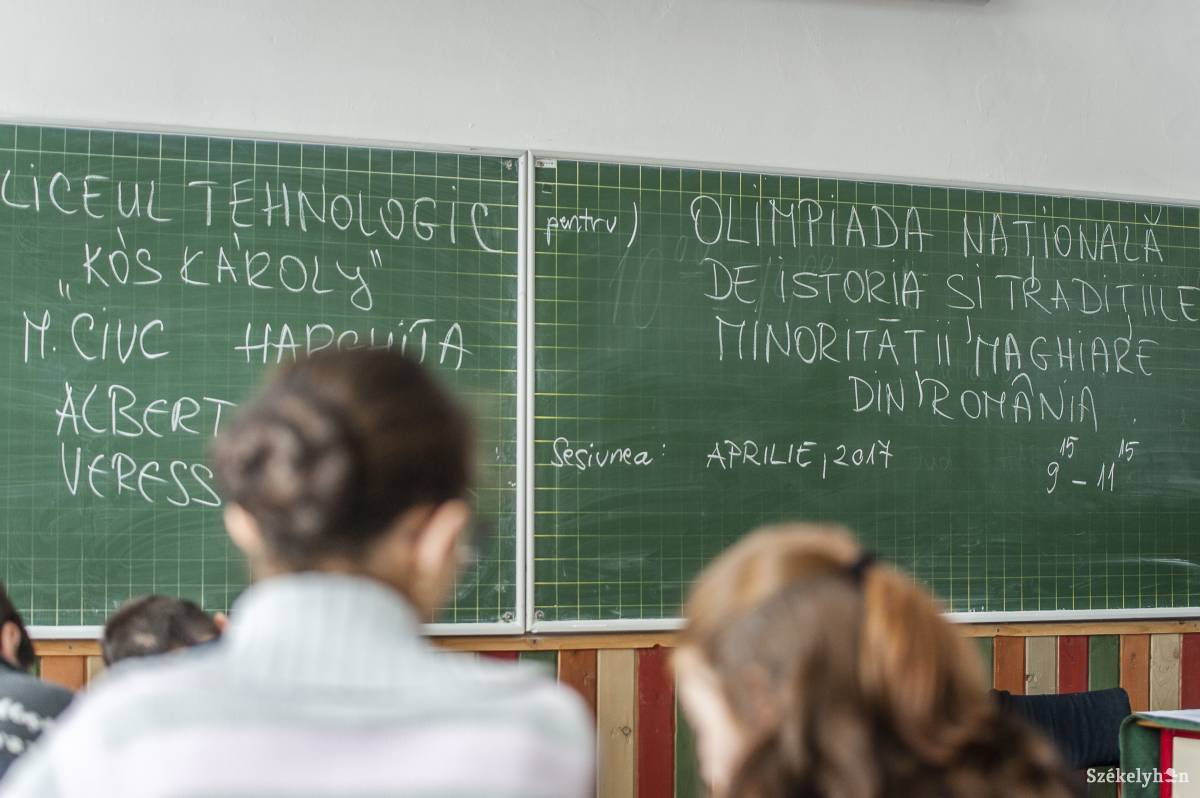 LICEUL TEHNOLOGIC
„KÓS KÁROLY"
M. CIUC HARGHITA
ALBERT
VERESS
pentru) OLIMPIADA NAȚIONALĂ
DE ISTORIA ȘI TRADIȚIILE
MINORITĂȚII MAGHIARE
DIN ROMÂNIA.
Sesiunea: APRILIE, 2017 9 15 – 11 15
Székelyhon